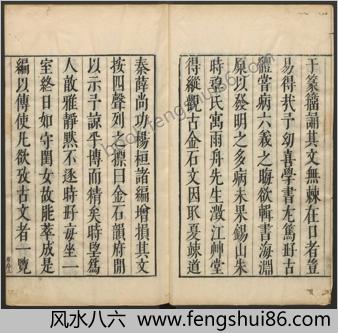 www.fengshui86.com
于篆籀誦其文無棘在口者豈
易得哉予幼喜學書尤篤好古
體嘗病六義之晦欲輯書海淵
原以發明之多病未果錫山朱
時望氏寓雨舟先生澂江艸堂
得縱觀古金石文因取夏竦道
泰薛尚功楊桓諸編增損其文
按四聲列之摽曰金石韻府開
以示予諒乎博而精矣時望爲
人敢雅靜默不逐時好每坐一
室終日如守閨女故能萃成是
編以傳使凡欲攷古文者一覽
风水八六
www.fengshui86.com